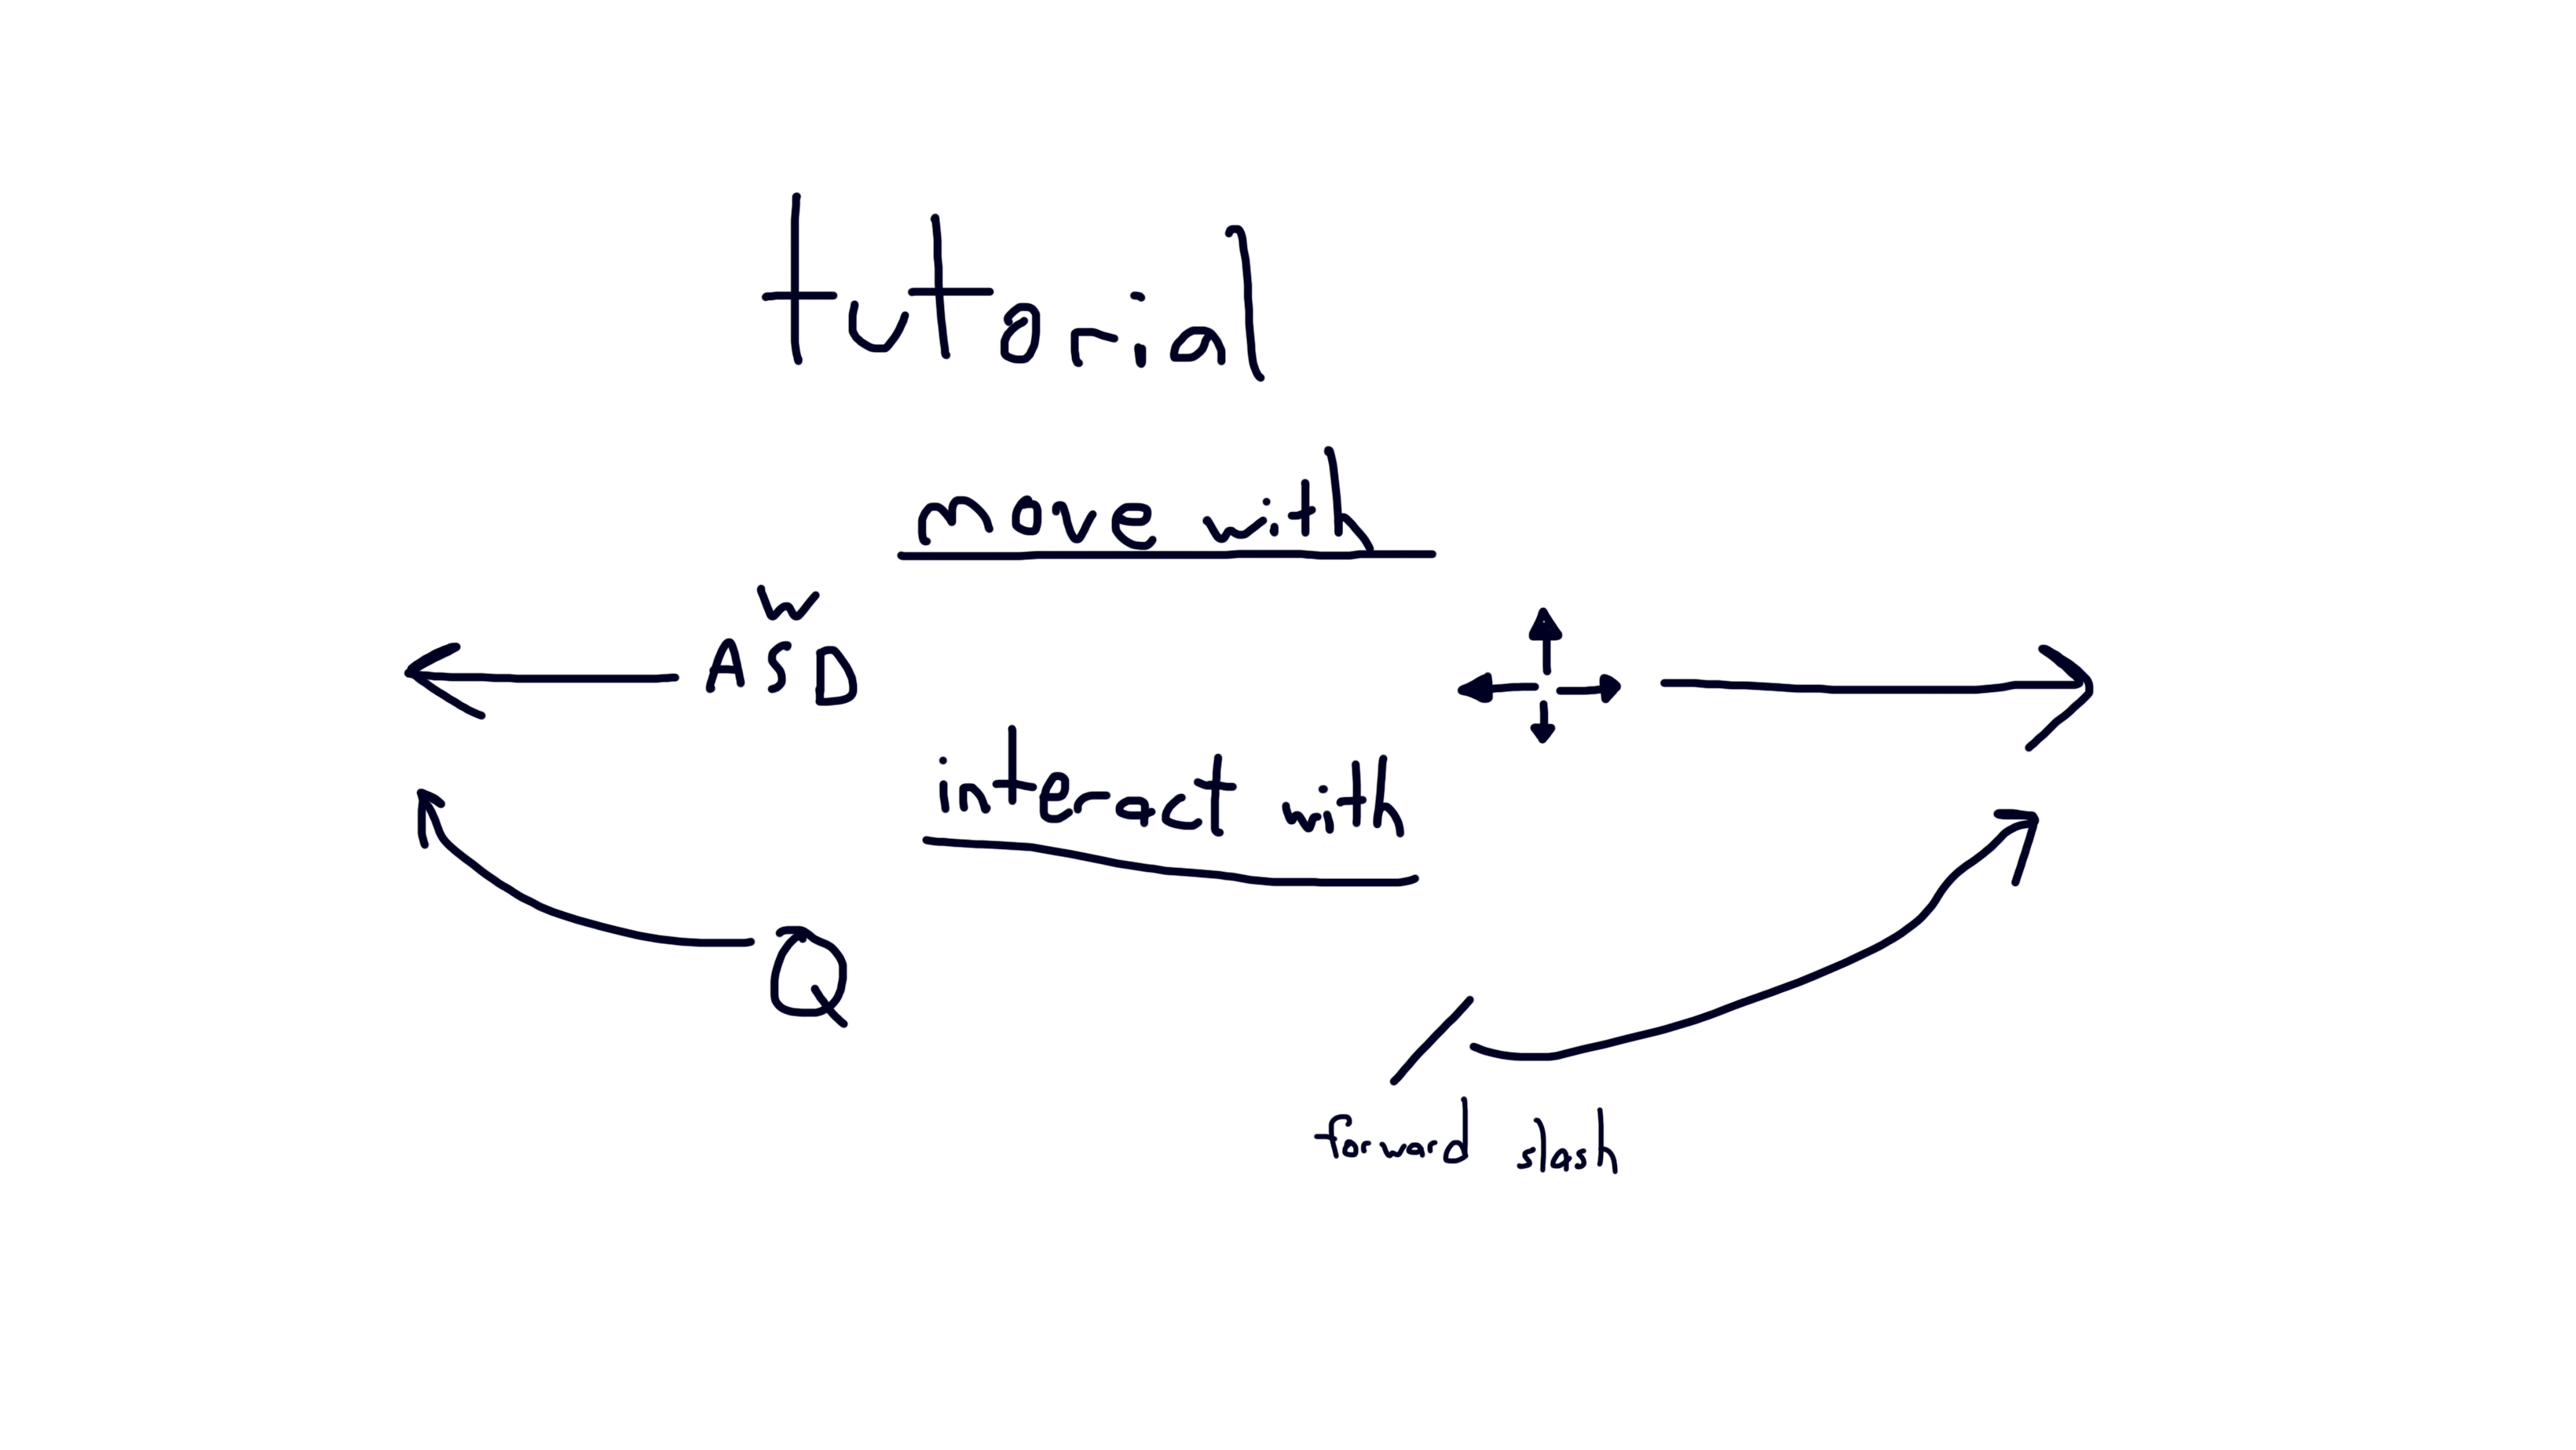 tutorial
move with
W
ASD
interact with
Q
/
forward slash